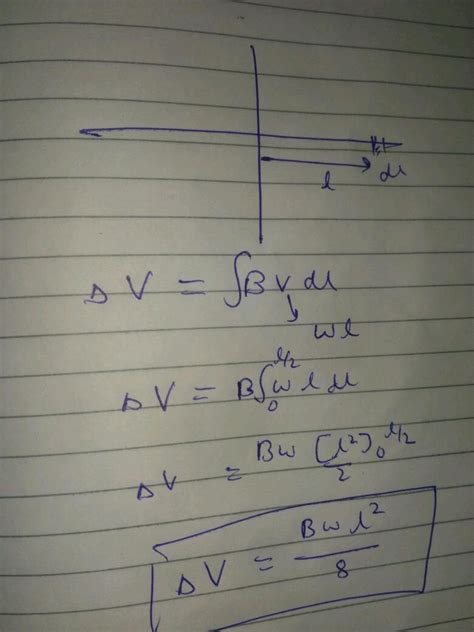 l dl
Δ V = ∫B v dl
↓
wl
Δ V = B∫₀^{l/2} w l dl
Δ V = Bw [l²]₀^{l/2} / 2
Δ V = B w l² / 8